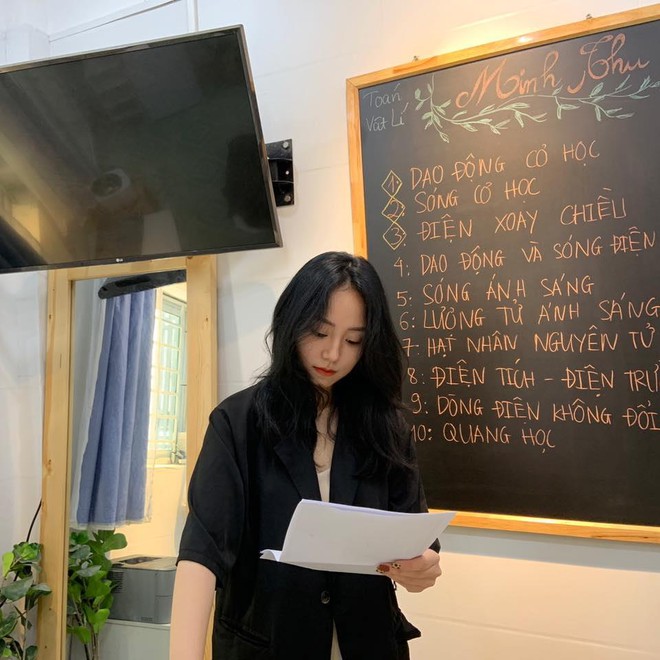 Toán
Vật Lí
Minh Thu
1 DAO ĐỘNG CƠ HỌC
2 SÓNG CƠ HỌC
3 ĐIỆN XOAY CHIỀU
4: DAO ĐỘNG VÀ SÓNG ĐIỆN
5: SÓNG ÁNH SÁNG
6: LƯỢNG TỬ ÁNH SÁNG
7: HẠT NHÂN NGUYÊN TỬ
8: ĐIỆN TÍCH - ĐIỆN TRƯ
9: DÒNG ĐIỆN KHÔNG ĐỔI
10: QUANG HỌC
LG